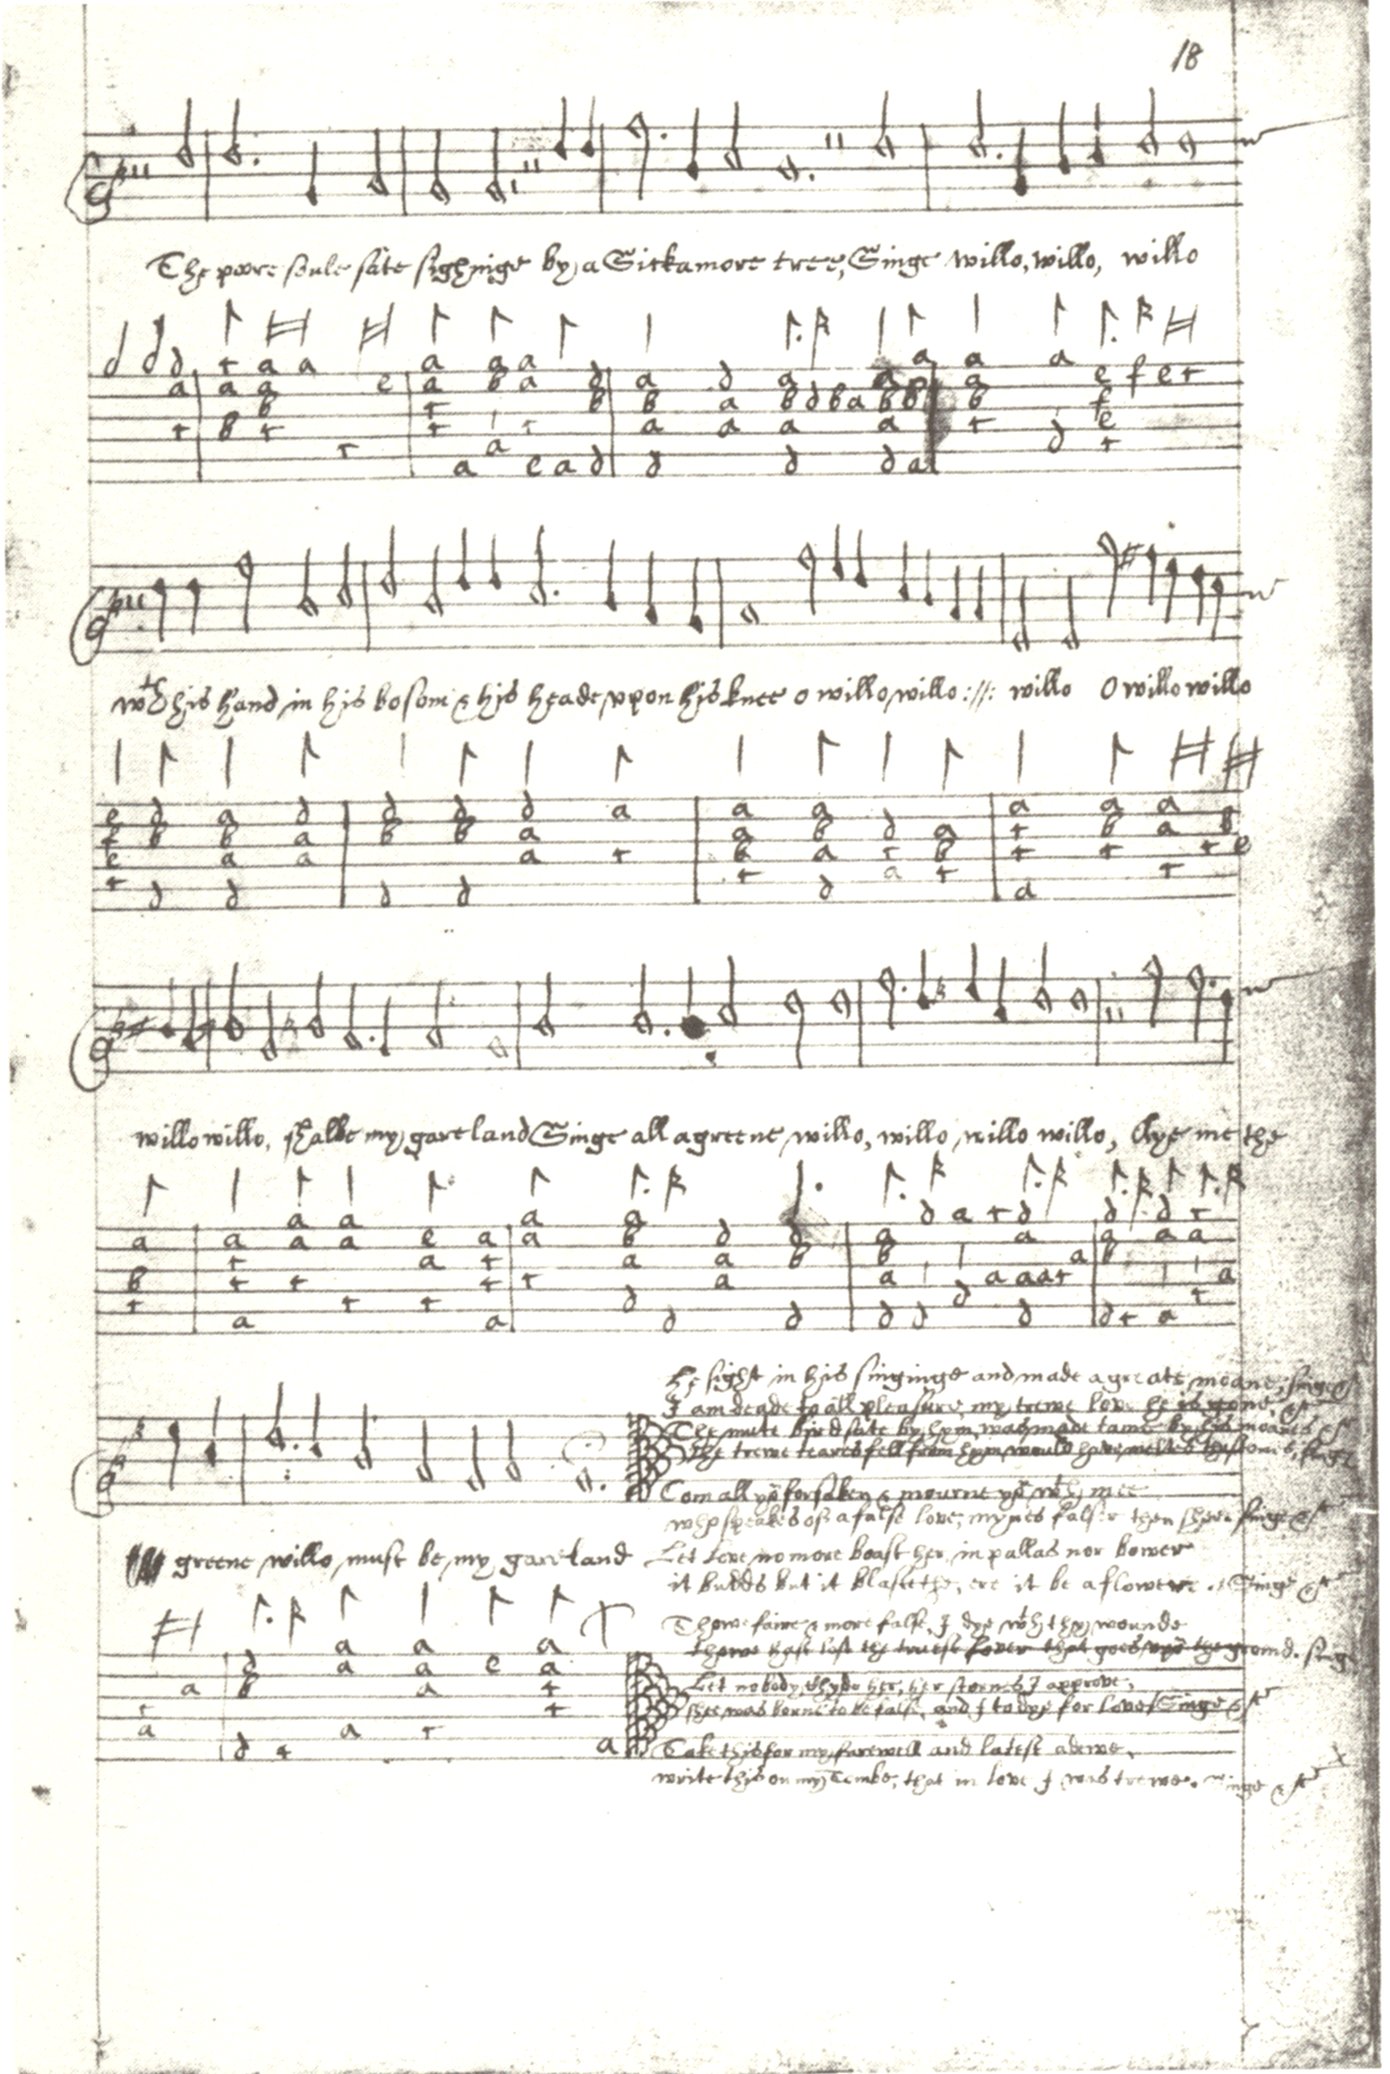 18
The poore soule sate sighinge by a Sickamore tree, Singe willo, willo, willo
wth his hand in his bosom & his heade vpon his knee o willo willo :||: willo O willo willo
willo willo, shalbe my gareland Singe all a greene willo, willo willo willo, Aye me the
greene willo must be my gareland
he sight in his singinge and made a greate moane, singe &c
I am deade to all pleasure my trewe love he is gone &c
The mute bird sate by hym was made tame by his moanes &c
the trewe teares fell from hym would have melted the stones, singe
Com all you forsaken & mourne you wth mee
who speakes of a false love, mynes falser then shee singe &c
Let love no more boast her in pallas nor bower
it budds but it blasteth, ere it be a flowere. Singe &c
Thowe faire & more false, I dye wth thy wounde
thowe hast lost the truest lover that goes vpon the ground. singe
Let nobody chyde her, her scornes I approve,
shee was borne to be false, and I to dye for love Singe &c
Take this for my farewell and latest adewe,
write this on my Tombe, that in love I was trewe. Singe &c